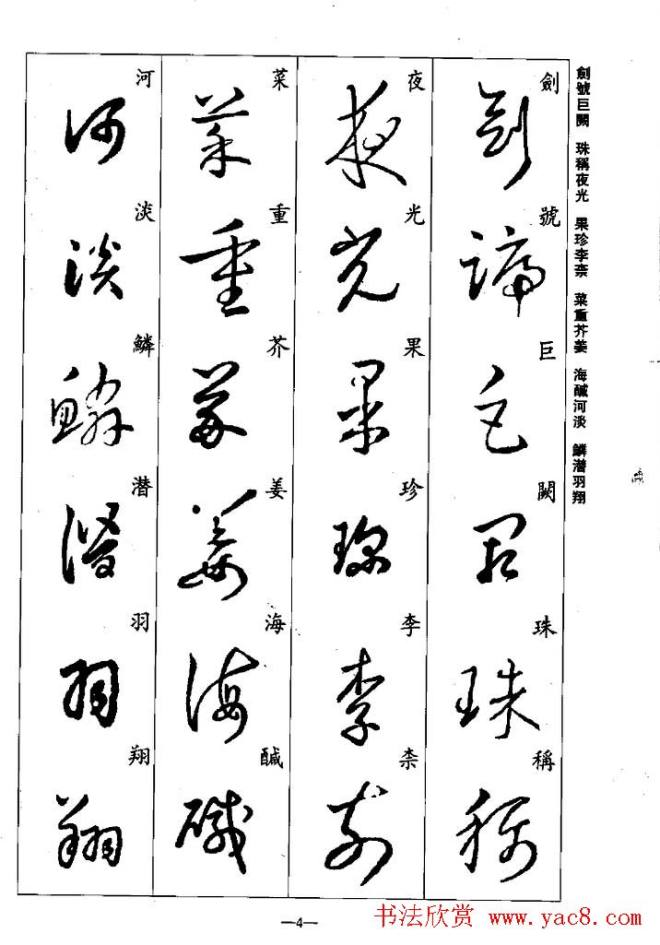 劍號巨闕 珠稱夜光 果珍李柰 菜重芥姜 海醎河淡 鱗潛羽翔
劍號巨闕珠稱
夜光果珍李柰
菜重芥姜海醎
河淡鱗潛羽翔
—4—
书法欣赏 www.yac8.com